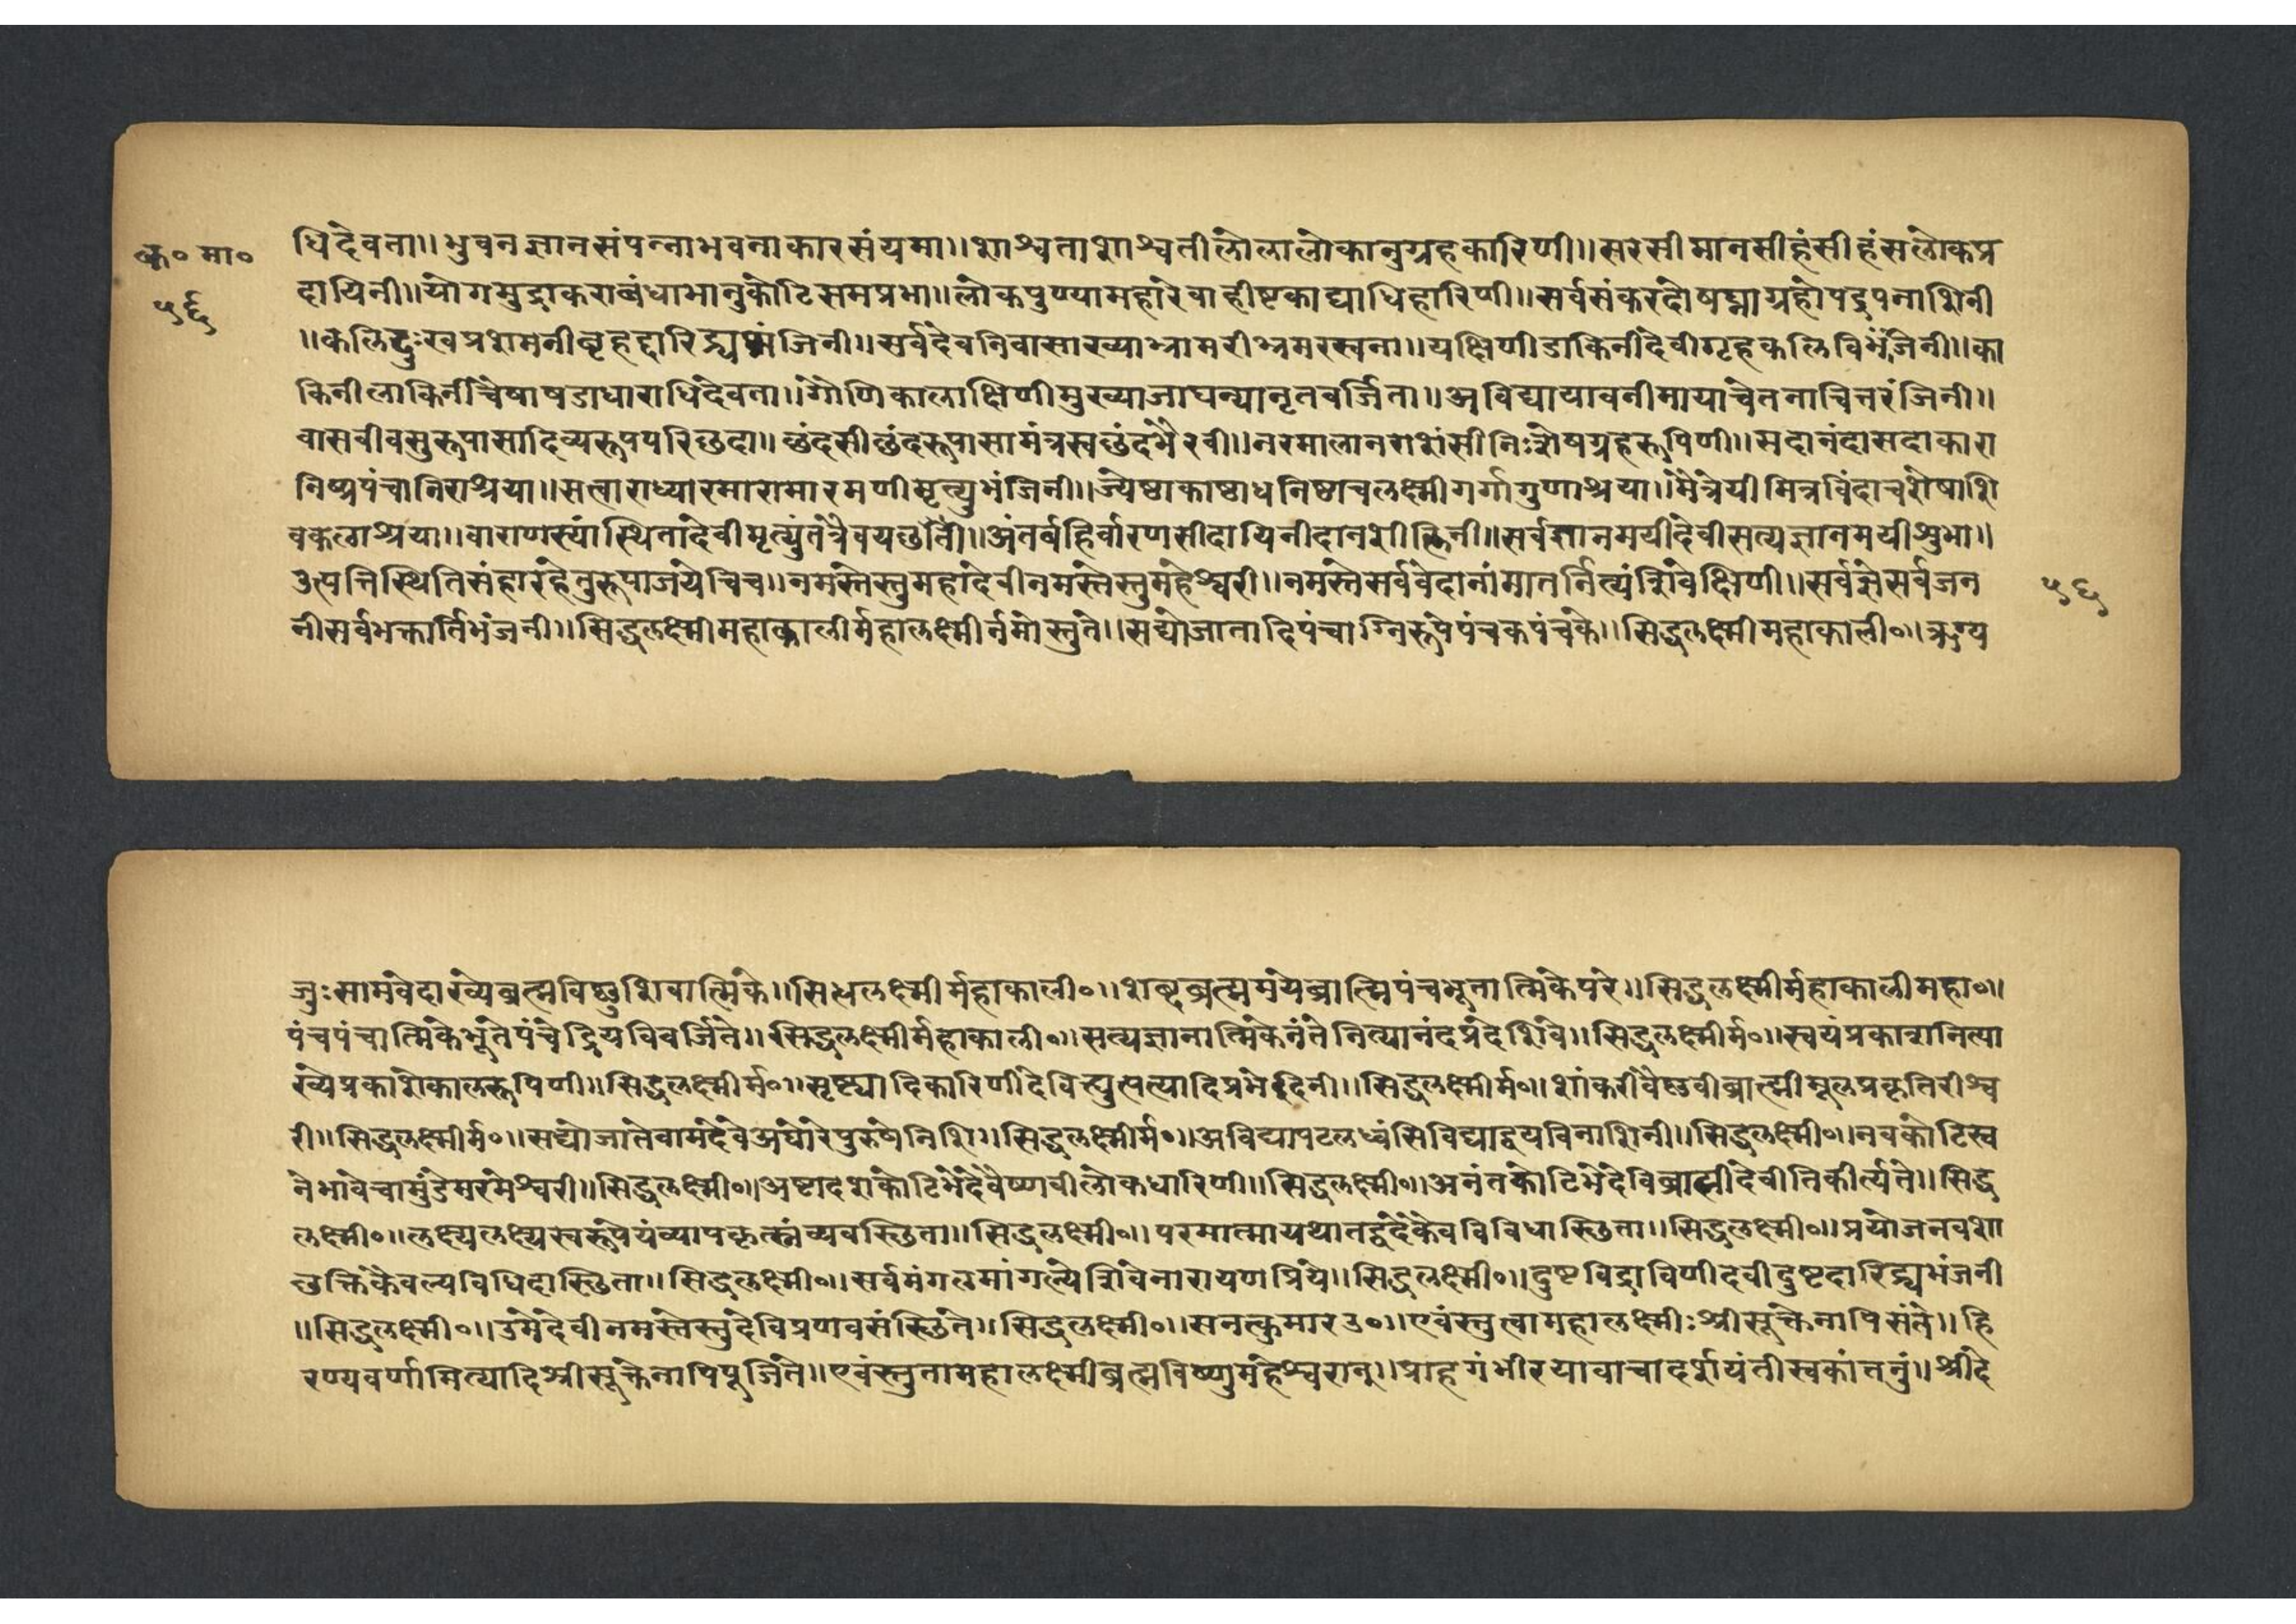 क० मा०
५६
धिदेवता॥भुवनज्ञानसंपन्नाभवनाकारसंयमा॥शाश्वताशाश्वतीलोलालोकानुग्रहकारिणी॥सरसीमानसीहंसीहंसलोकप्र
दायिनी॥योगमुद्राकराबंधाभानुकोटिसमप्रभा॥लोकपुण्यामहारेवाह्नीष्टकाद्याधिहारिणी॥सर्वसंकरदोषघ्नाग्रहोपद्रुपनाशिनी
॥कलिदुःखप्रशमनीबृहद्दारिद्र्यभंजिनी॥सुर्वदेवनिवासाख्याभ्रामरीभ्रमरस्वना॥यक्षिणीडाकिनीदेवीगृहकलिविभंजिनी॥का
किनीलाकिनीचैषाषडाधाराधिदेवता॥गोणिकालाक्षिणीमुख्याजाघन्यानृतवर्जिता॥अविद्यायावनीमायाचेतनाचित्तरंजिनी॥
वासवीवसुरूपासादिव्यरूपपरिछदा॥छंदसीछंदरूपासामंत्रस्वछंदभैरवी॥नरमालानराशंसीनिःशेषग्रहरूपिणी॥सदानंदासदाकारा
निष्प्रपंचानिराश्रया॥सत्वाराध्यारमारामारमणीमृत्त्युभंजिनी॥ज्येष्ठाकाष्ठाधनिष्ठाचलक्ष्मीगर्गागुणाश्रया॥मैत्रेयीमित्रविंदाचशेषाशि
वकलाश्रया॥वाराणस्यांस्थितादेवीमृत्युंतंत्रैवयछति॥अंतर्बहिर्वारणसीदायिनीदानशीलिनी॥सर्वज्ञानमयीदेवीसत्यज्ञानमयीशुभा॥
उत्पत्तिस्थितिसंहारहेतुरूपाजयेचिच॥नमस्तेस्तुमहादेवीनमस्तेस्तुमहेश्वरी॥नमस्तेसर्ववेदानांमातर्नित्यंशिवेक्षिणी॥सर्वज्ञेसर्वजन
५६
नीसर्वभक्तार्तिभंजनी॥सिद्धलक्ष्मीमहाकालीर्महालक्ष्मीर्नमोस्तुते॥सद्योजातादिपंचाग्निरूपेपंचकपंचके॥सिद्धलक्ष्मीमहाकाली०॥ऋग्य
जुःसामवेदाख्येब्रह्मविष्णुशिवात्मिके॥सिधलक्ष्मीर्महाकाली०॥शब्दब्रह्ममयेब्राह्मिपंचभूतात्मिकेपरे॥सिद्धलक्ष्मीर्महाकालीमहा०॥
पंचपंचात्मिकेभूतेपंचेंद्रियविवर्जिते॥सिद्धलक्ष्मीर्महाकाली०॥सत्यज्ञानात्मिकेनंतेनित्यानंदप्रदेशिवे॥सिद्धलक्ष्मीर्म०॥स्वयंप्रकाशनित्या
ख्येप्रकाशेकालरूपिणी॥सिद्धलक्ष्मीर्म०॥सृष्ट्यादिकारिणीदेवित्युत्पत्यादिप्रभेदिनी॥सिद्धलक्ष्मीर्म०॥शांकरीवैष्णवीब्राह्मीमूलप्रकृतिरीश्व
री॥सिद्धलक्ष्मीर्म०॥सद्योजातेवामदेवेअघोरेपुरुषेनिशि॥सिद्धलक्ष्मीर्म०॥अविद्यापटलध्वंसिविद्याद्वयविनाशिनी॥सिद्धलक्ष्मी०॥नवकोटिस्व
नेभावेचामुंडेमरमेश्वरी॥सिद्धलक्ष्मी०॥अष्टादशकोटिभेदेवैष्णवीलोकधारिणी॥सिद्धलक्ष्मी०॥अनंतकोटिभेदेविब्राह्मीदेवीतिकीर्त्यते॥सिद्ध
लक्ष्मी०॥लक्ष्यलक्ष्यस्वरूपेयंव्यापकृत्स्नंव्यवस्छिता॥सिद्धलक्ष्मी०॥परमात्मायथातद्वदेकेवविविधास्छिता॥सिद्धलक्ष्मी०॥प्रयोजनवशा
छक्तिकैवल्यविधिदास्छिता॥सिद्धलक्ष्मी०॥सर्वमंगलमांगल्येशिवेनारायणप्रिये॥सिद्धलक्ष्मी०॥दुष्टविद्राविणीदेवीदुष्टदारिद्र्यभंजनी
॥सिद्धलक्ष्मी०॥उमेदेवीनमस्तेस्तुदेविप्रणवसंस्छिते॥सिद्धलक्ष्मी०॥सनत्कुमारउ०॥एवंस्तुत्वामहालक्ष्मीःश्रीसूक्तेनापिसंते॥हि
रण्यवर्णामित्यादिश्रीसूक्तेनापिपूजिते॥एवंस्तुतामहालक्ष्मीब्रह्मविष्णुमहेश्वरान्॥प्राहगंभीरयावाचादर्शयंतीस्वकांतनुं॥श्रीदे